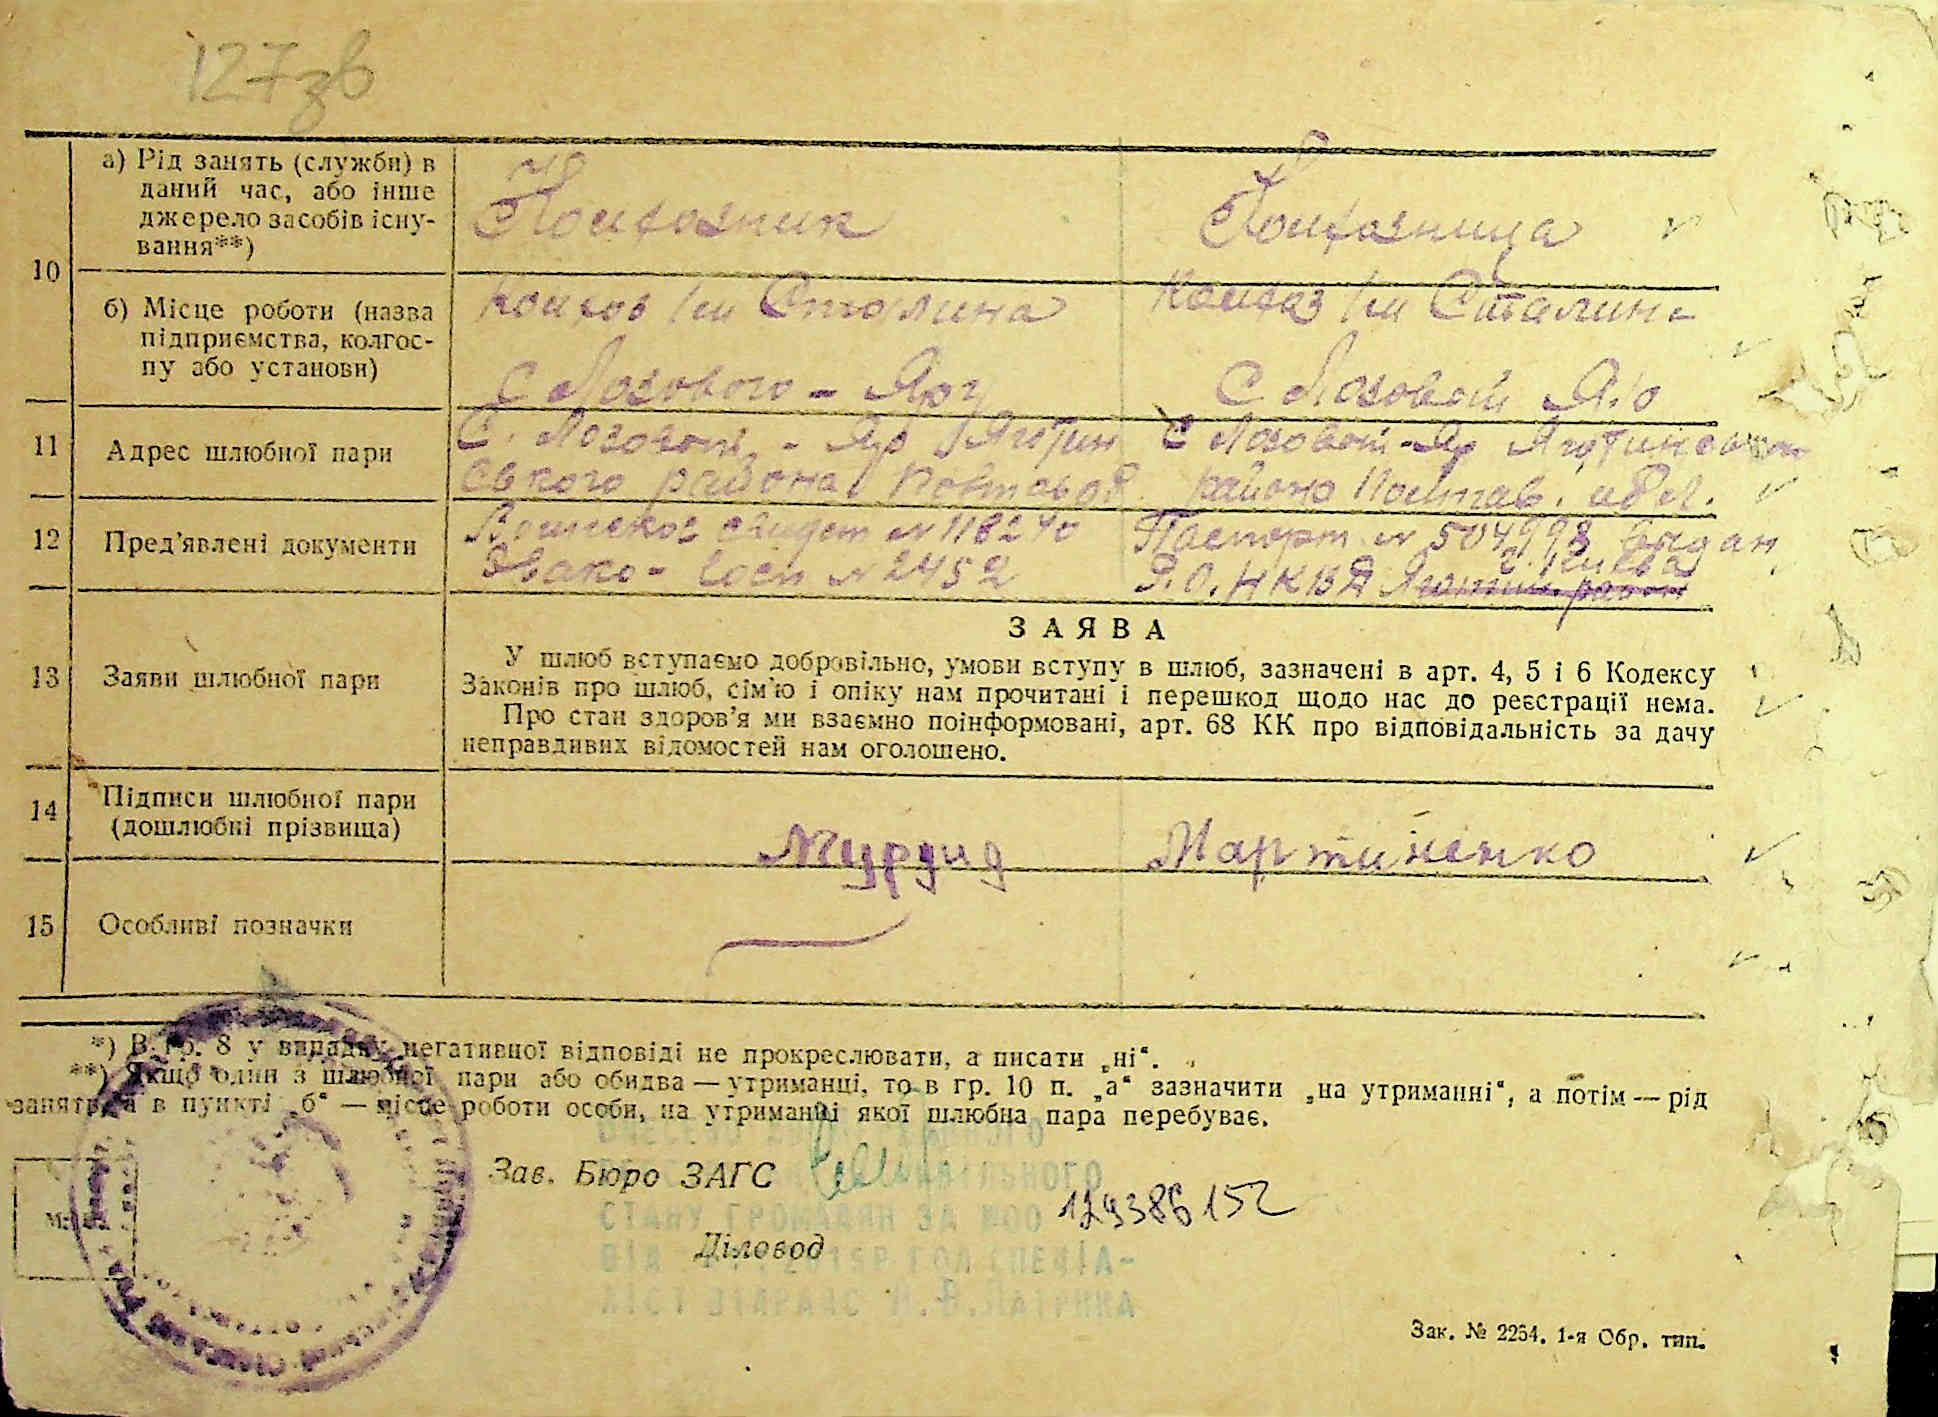 127 зв
10
а) Рід занять (служби) в
даний час, або інше
джерело засобів існу-
вання**)
Колхозник
Колхозница
б) Місце роботи (назва
підприємства, колгос-
пу або установи)
Колхоз Им Сталина
Колхоз Им Сталина
С Лозового - Яру
С Лозовой Яр
11
Адрес шлюбної пари
С. Лозовой - Яр Яготин
ского района Полтавоб.
С Лозовой-Яр Яготинского
района Полтав. обл.
12
Пред’явлені документи
Воинское свидет № 118240
Эвако-Госп № 2452
Паспорт № 504998 выдан
г. Киева
Р.О. НКВД Яготин. район
13
Заяви шлюбної пари
ЗАЯВА
У шлюб вступаємо добровільно, умови вступу в шлюб, зазначені в арт. 4, 5 і 6 Кодексу
Законів про шлюб, сім’ю і опіку нам прочитані і перешкод щодо нас до реєстрації нема.
Про стан здоров’я ми взаємно поінформовані, арт. 68 КК про відповідальність за дачу
неправдивих відомостей нам оголошено.
14
Підписи шлюбної пари
(дошлюбні прізвища)
Мурдид
Мартиненко
15
Особливі позначки
*) В гр. 8 у випадку негативної відповіді не прокреслювати, а писати „ні“.
**) Якщо один з шлюбної пари або обидва — утриманці, то в гр. 10 п. „а“ зазначити „на утриманні“, а потім — рід
занять, а в пункті „б“ — місце роботи особи, на утриманні якої шлюбна пара перебуває.
М. П.
Зав. Бюро ЗАГС
СТАНУ ГРОМАДЯН ЗА №00 129386152
Діловод
Зак. № 2254. 1-я Обр. тип.